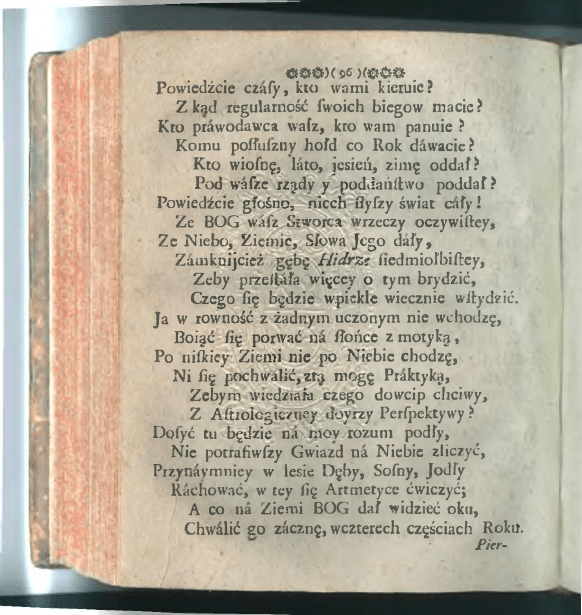 ❁❁❁)( 96 )(❁❁❁
Powiedźcie czáſy, kto wami kieruie?
Z kąd regularność ſwoich biegow macie?
Kto práwodawca waſz, kto wam panuie ?
Komu poſłuſzny hołd co Rok dáwacie?
Kto wioſnę, láto, jesień, zimę oddał?
Pod wáſze rządy y poddańſtwo poddał?
Powiedźcie głośno, niech ſłyſzy świat cáły!
Ze BOG wáſz Stworca wrzeczy oczywiſtey,
Ze Niebo, Ziemie, Słowa Jego dáły,
Zámknijcież gębę Hidrze ſiedmiołbiſtey,
Zeby przeſtáła więcey o tym brydzić,
Czego ſię będzie wpiekle wiecznie wſtydzić.
Ja w rowność z żadnym uczonym nie wchodzę,
Boiąć ſię porwać ná ſłońce z motyką,
Po niſkiey Ziemi nie po Niebie chodzę,
Ni ſię pochwalić, ztą mogę Práktyką,
Zebym wiedziała czego dowcip chciwy,
Z Aſtrologiczney doyrzy Perſpektywy?
Doſyć tu będzie ná moy rozum podły,
Nie potrafiwſzy Gwiazd ná Niebie zliczyć,
Przynáymniey w lesie Dęby, Soſny, Jodły
Ráchować, w tey ſię Artmetyce ćwiczyć;
A co ná Ziemi BOG dał widzieć oku,
Chwálić go zácznę, wczterech częściach Roku.
Pier-